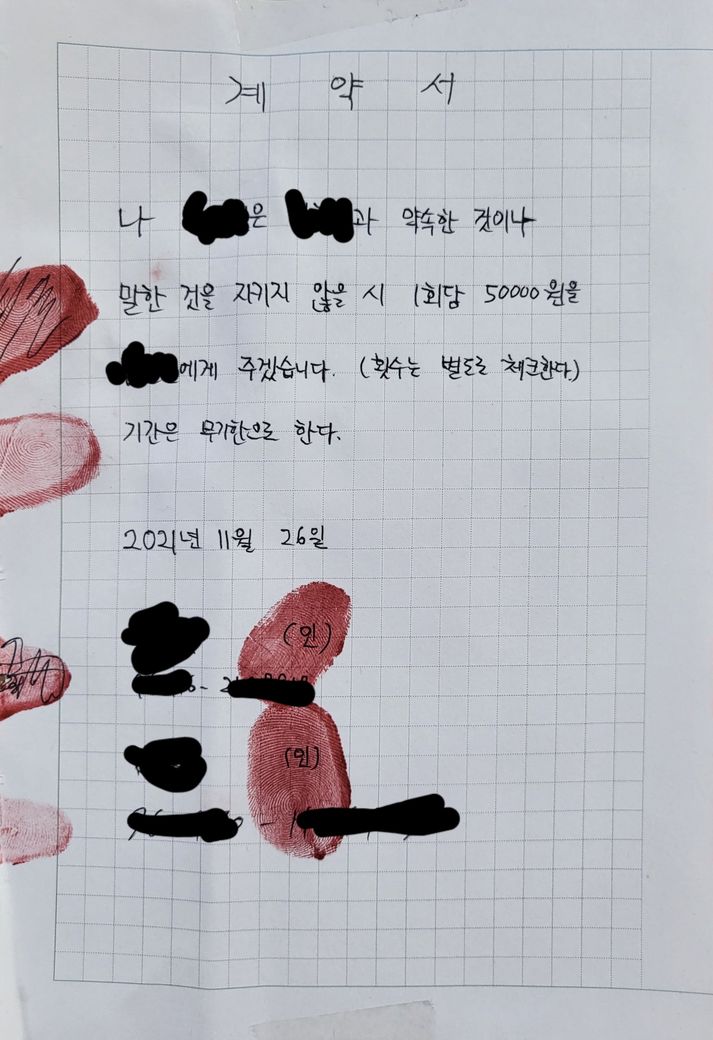 계 약 서
나 은 과 약속한 것이나
말한 것을 지키지 않을 시 1회당 50000원을
에게 주겠습니다. (횟수는 별도로 체크한다.)
기간은 무기한으로 한다.
2021년 11월 26일
(인)
(인)